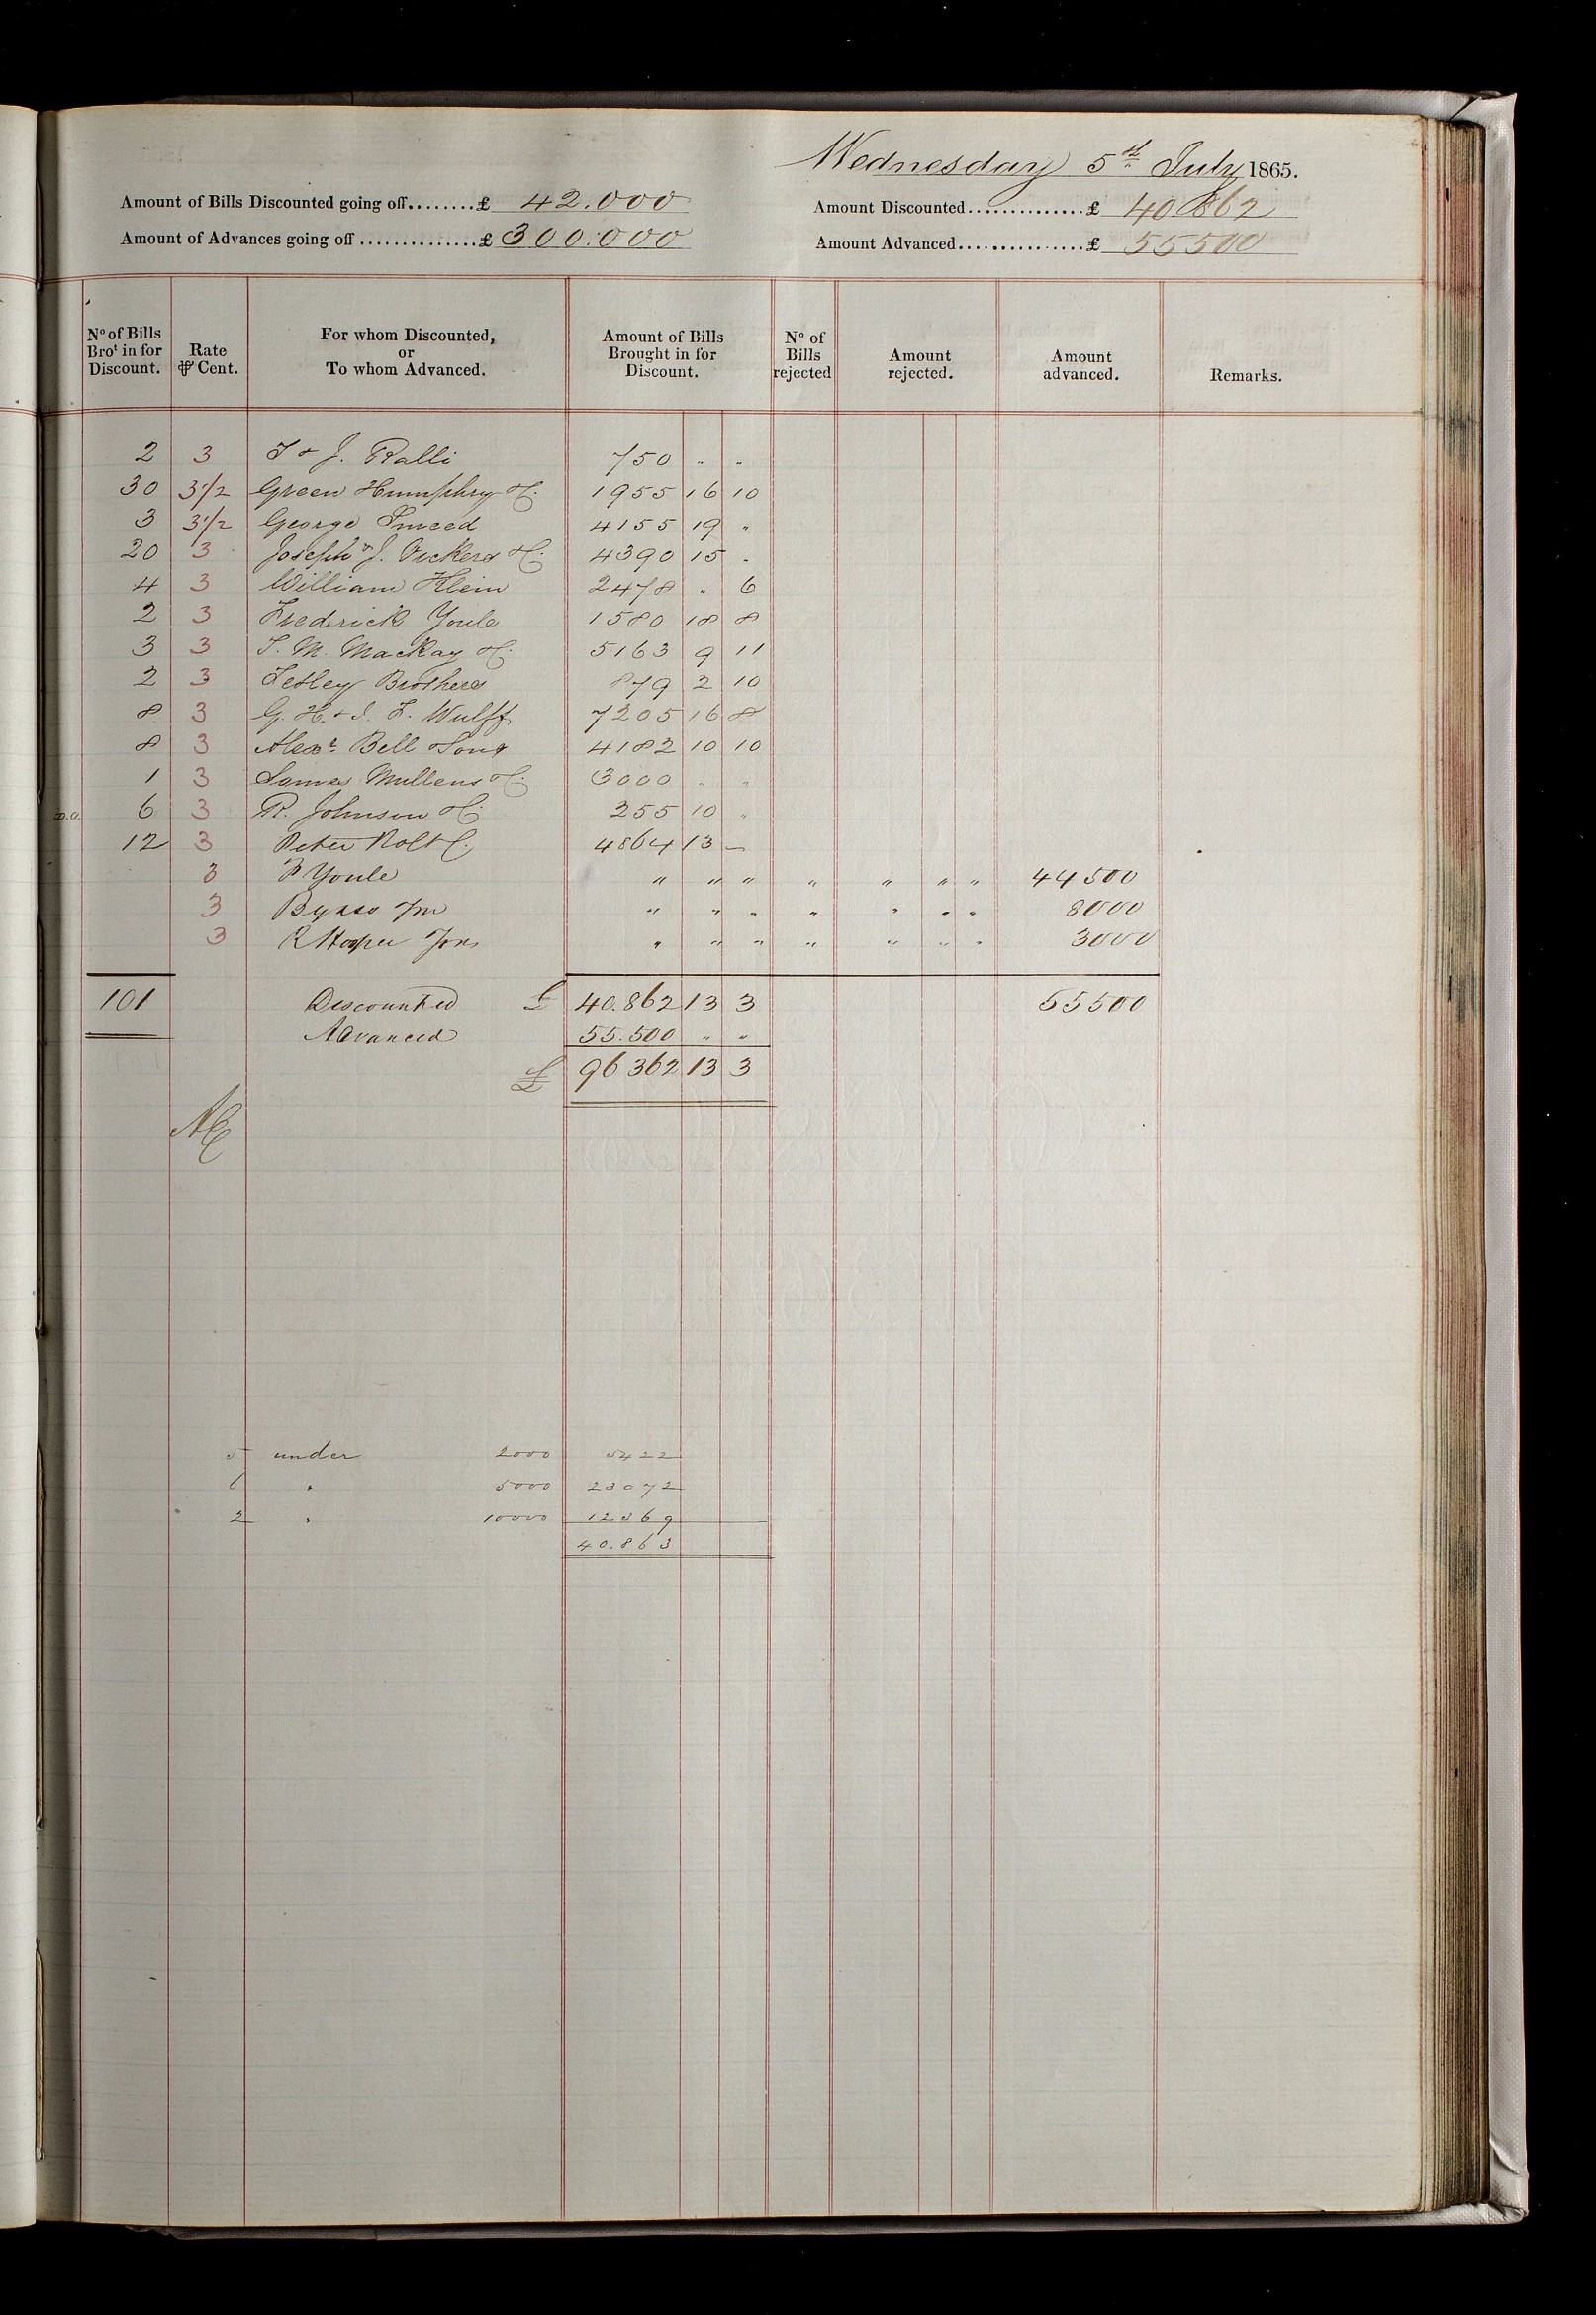 Wednesday 5th July 1865.
Amount of Bills Discounted going off........£ 42.000
Amount Discounted..............£ 40862
Amount of Advances going off..............£ 300.000
Amount Advanced...............£ 55500
No of Bills Brot in for Discount. Rate ⅌ Cent. For whom Discounted, or To whom Advanced. Amount of Bills Brought in for Discount. No of Bills rejected Amount rejected. Amount advanced. Remarks.
2 3 T & J. Ralli 750 " "
30 3 1/2 Green Humphry & C. 1955 16 10
3 3 1/2 George Smeed 4155 19 "
20 3 Joseph & J. Vickers & C. 4390 15 "
4 3 William Klein 2478 " 6
2 3 Frederick Youle 1580 18 8
3 3 T. M. Mackay & C. 5163 9 11
2 3 Brothers 879 2 10
8 3 G. H. & J. F. Wulff 7205 16 8
8 3 Alexr Bell & Sons 4182 10 10
1 3 James Mullens & C. 3000 " "
6 3 R. Johnson & C. 255 10 "
12 3 Peter Rolt & C. 4864 13 —
3 F Youle " " " " " " " 44500
3 " " " " " " " 8000
3 R Hooper " " " " " " " 3000
101 Discounted £ 40.862 13 3 55500
Advanced 55.500 " "
£ 96362 13 3
5 under 2000 5422
6 " 5000 23072
2 " 10000 12369
40.863